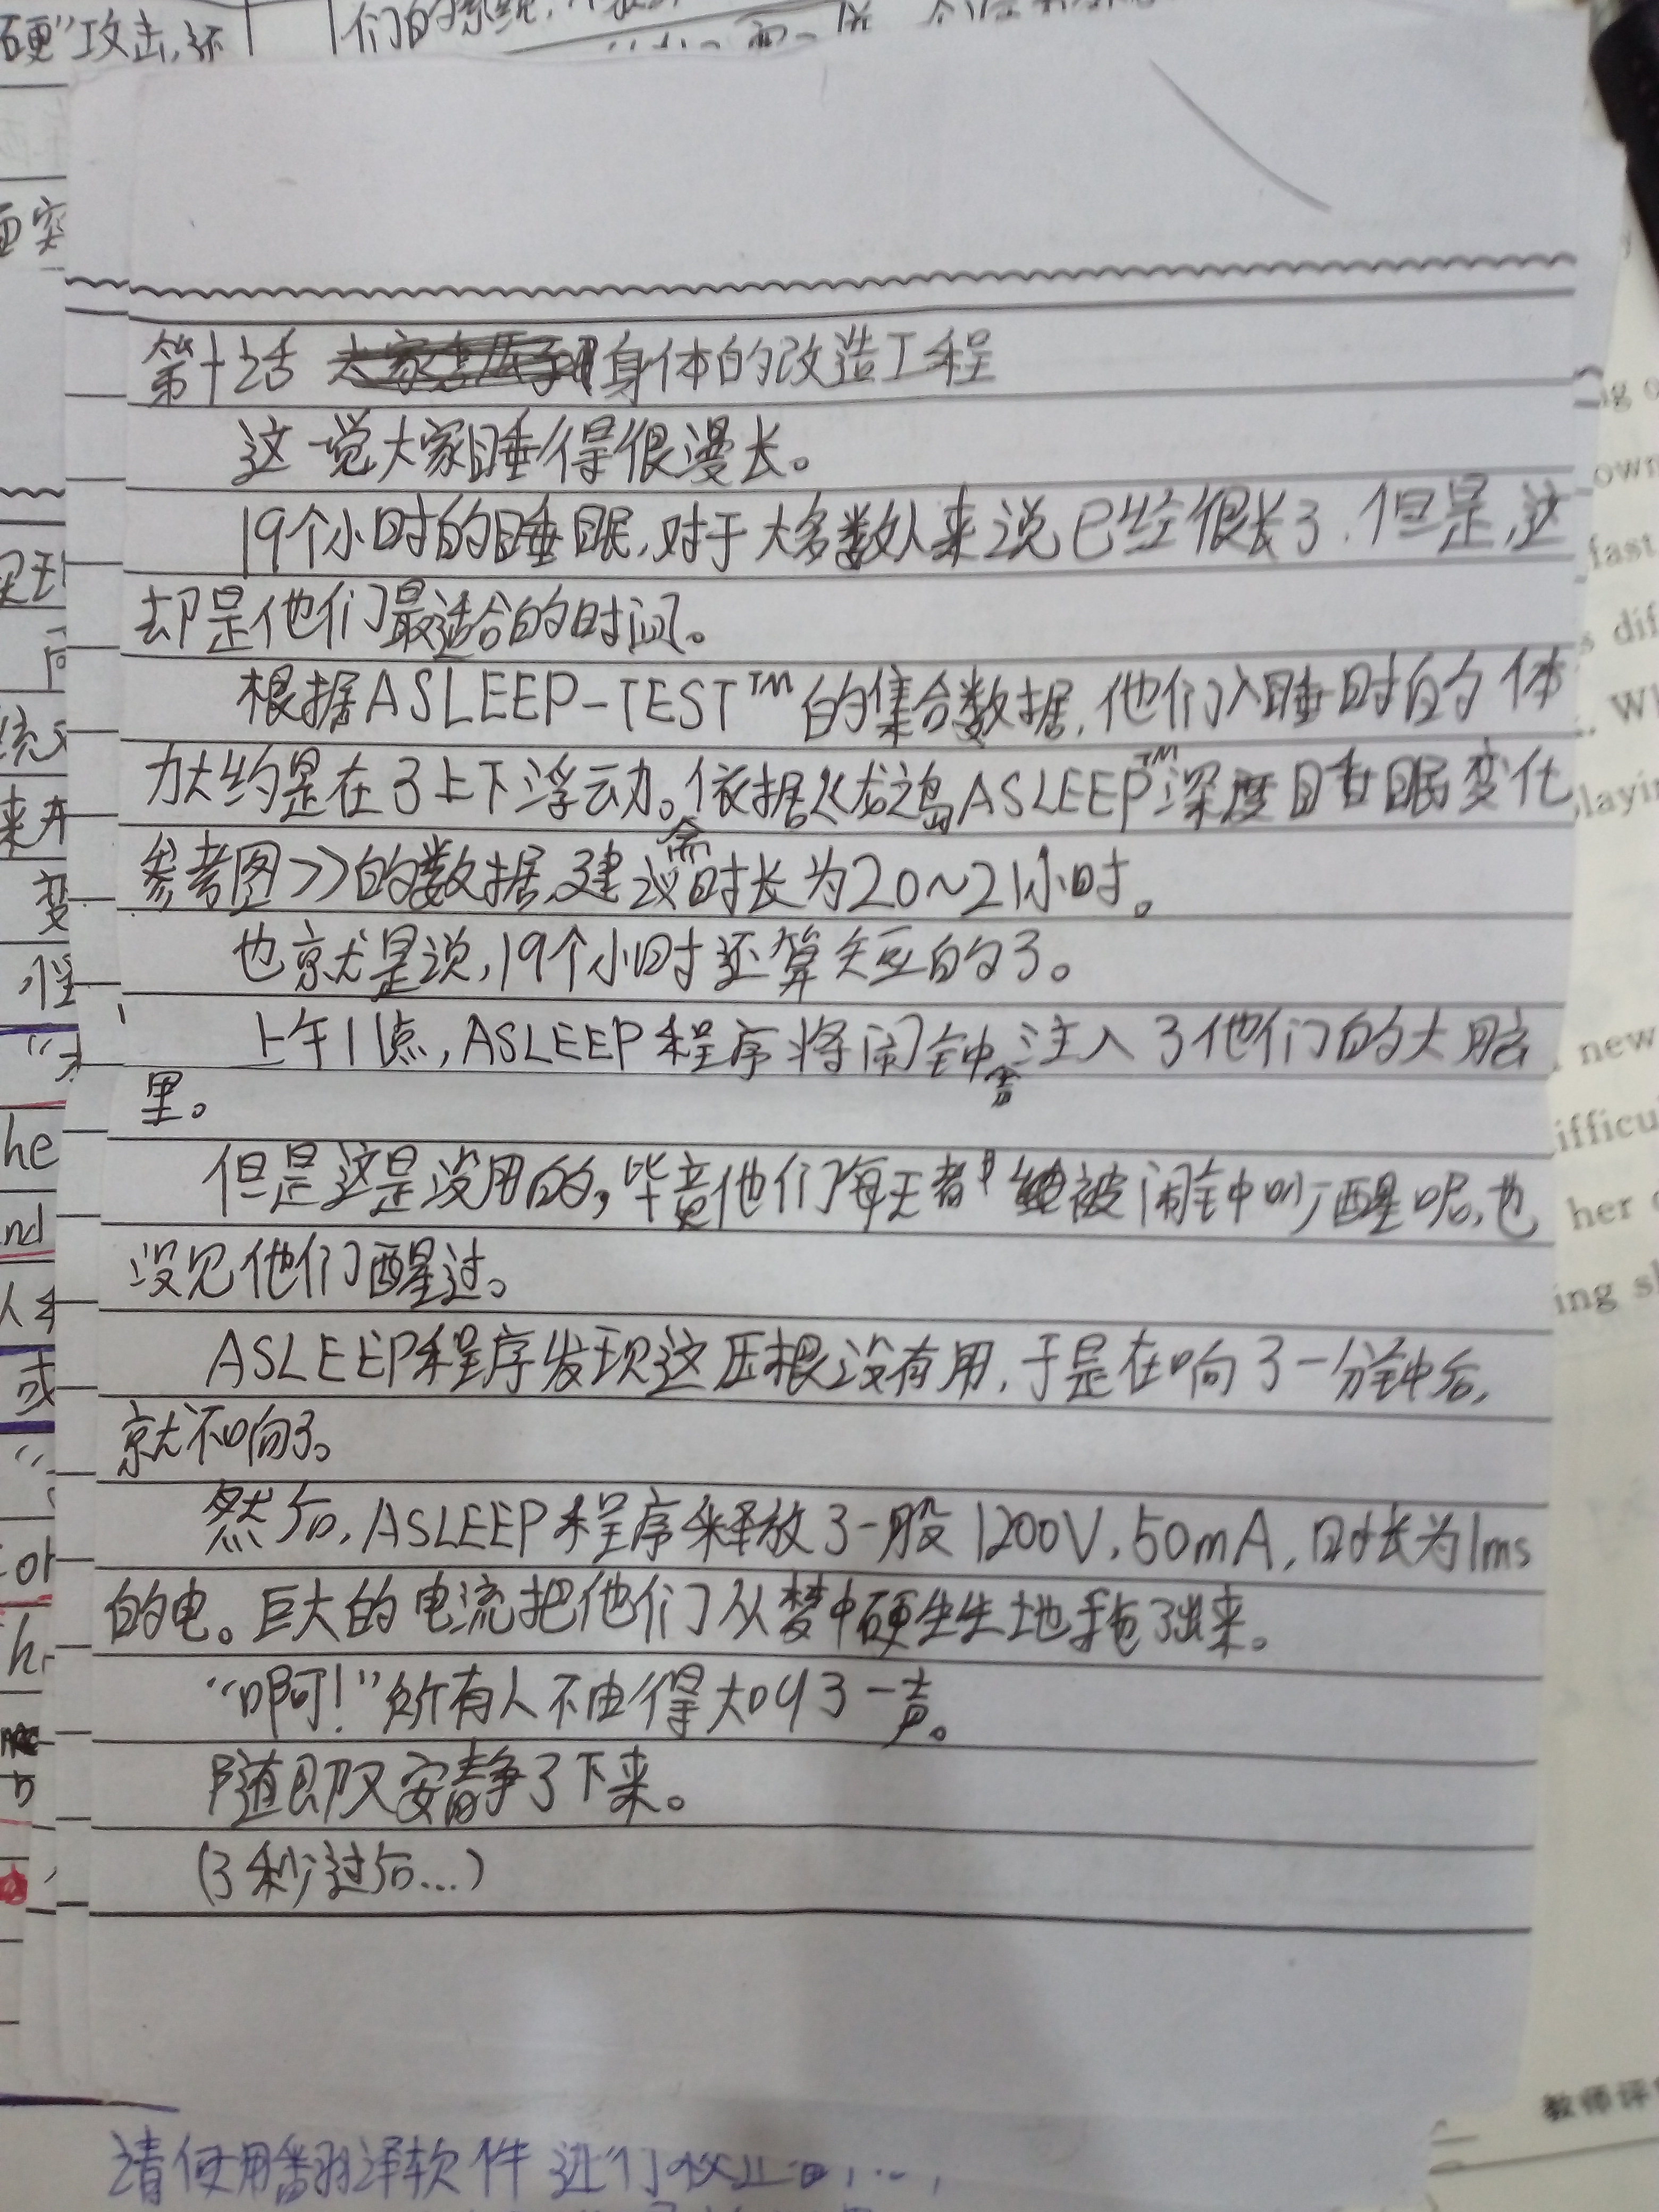 硬"攻击,还
们的系统,
第十话 身体的改造工程
这一觉大家睡得很漫长。
19个小时的睡眠,对于大多数人来说已经很长了.但是,这
却是他们最适合的时间。
根据ASLEEP-TEST™的集合数据,他们入睡时的体
力大约是在3上下浮动。依据《龙之岛ASLEEP™深度睡眠变化
参考图》的数据,建议需时长为20~21小时。
也就是说,19个小时还算短的了。
上午11点,ASLEEP程序将闹钟声注入了他们的大脑
里。
但是这是没用的,毕竟他们每天都被闹钟叫醒呢,也
没见他们醒过。
ASLEEP程序发现这压根没有用,于是在响了一分钟后,
就不响了。
然后,ASLEEP程序释放了一股1200V,50mA,时长为1ms
的电。巨大的电流把他们从梦中硬生生地拖了出来。
"啊!"所有人不由得大叫了一声。
随即又安静了下来。
(3秒过后...)
请使用翻译软件进行
own
fast
s dif
layin
new
ifficu
her
ing s
教师评